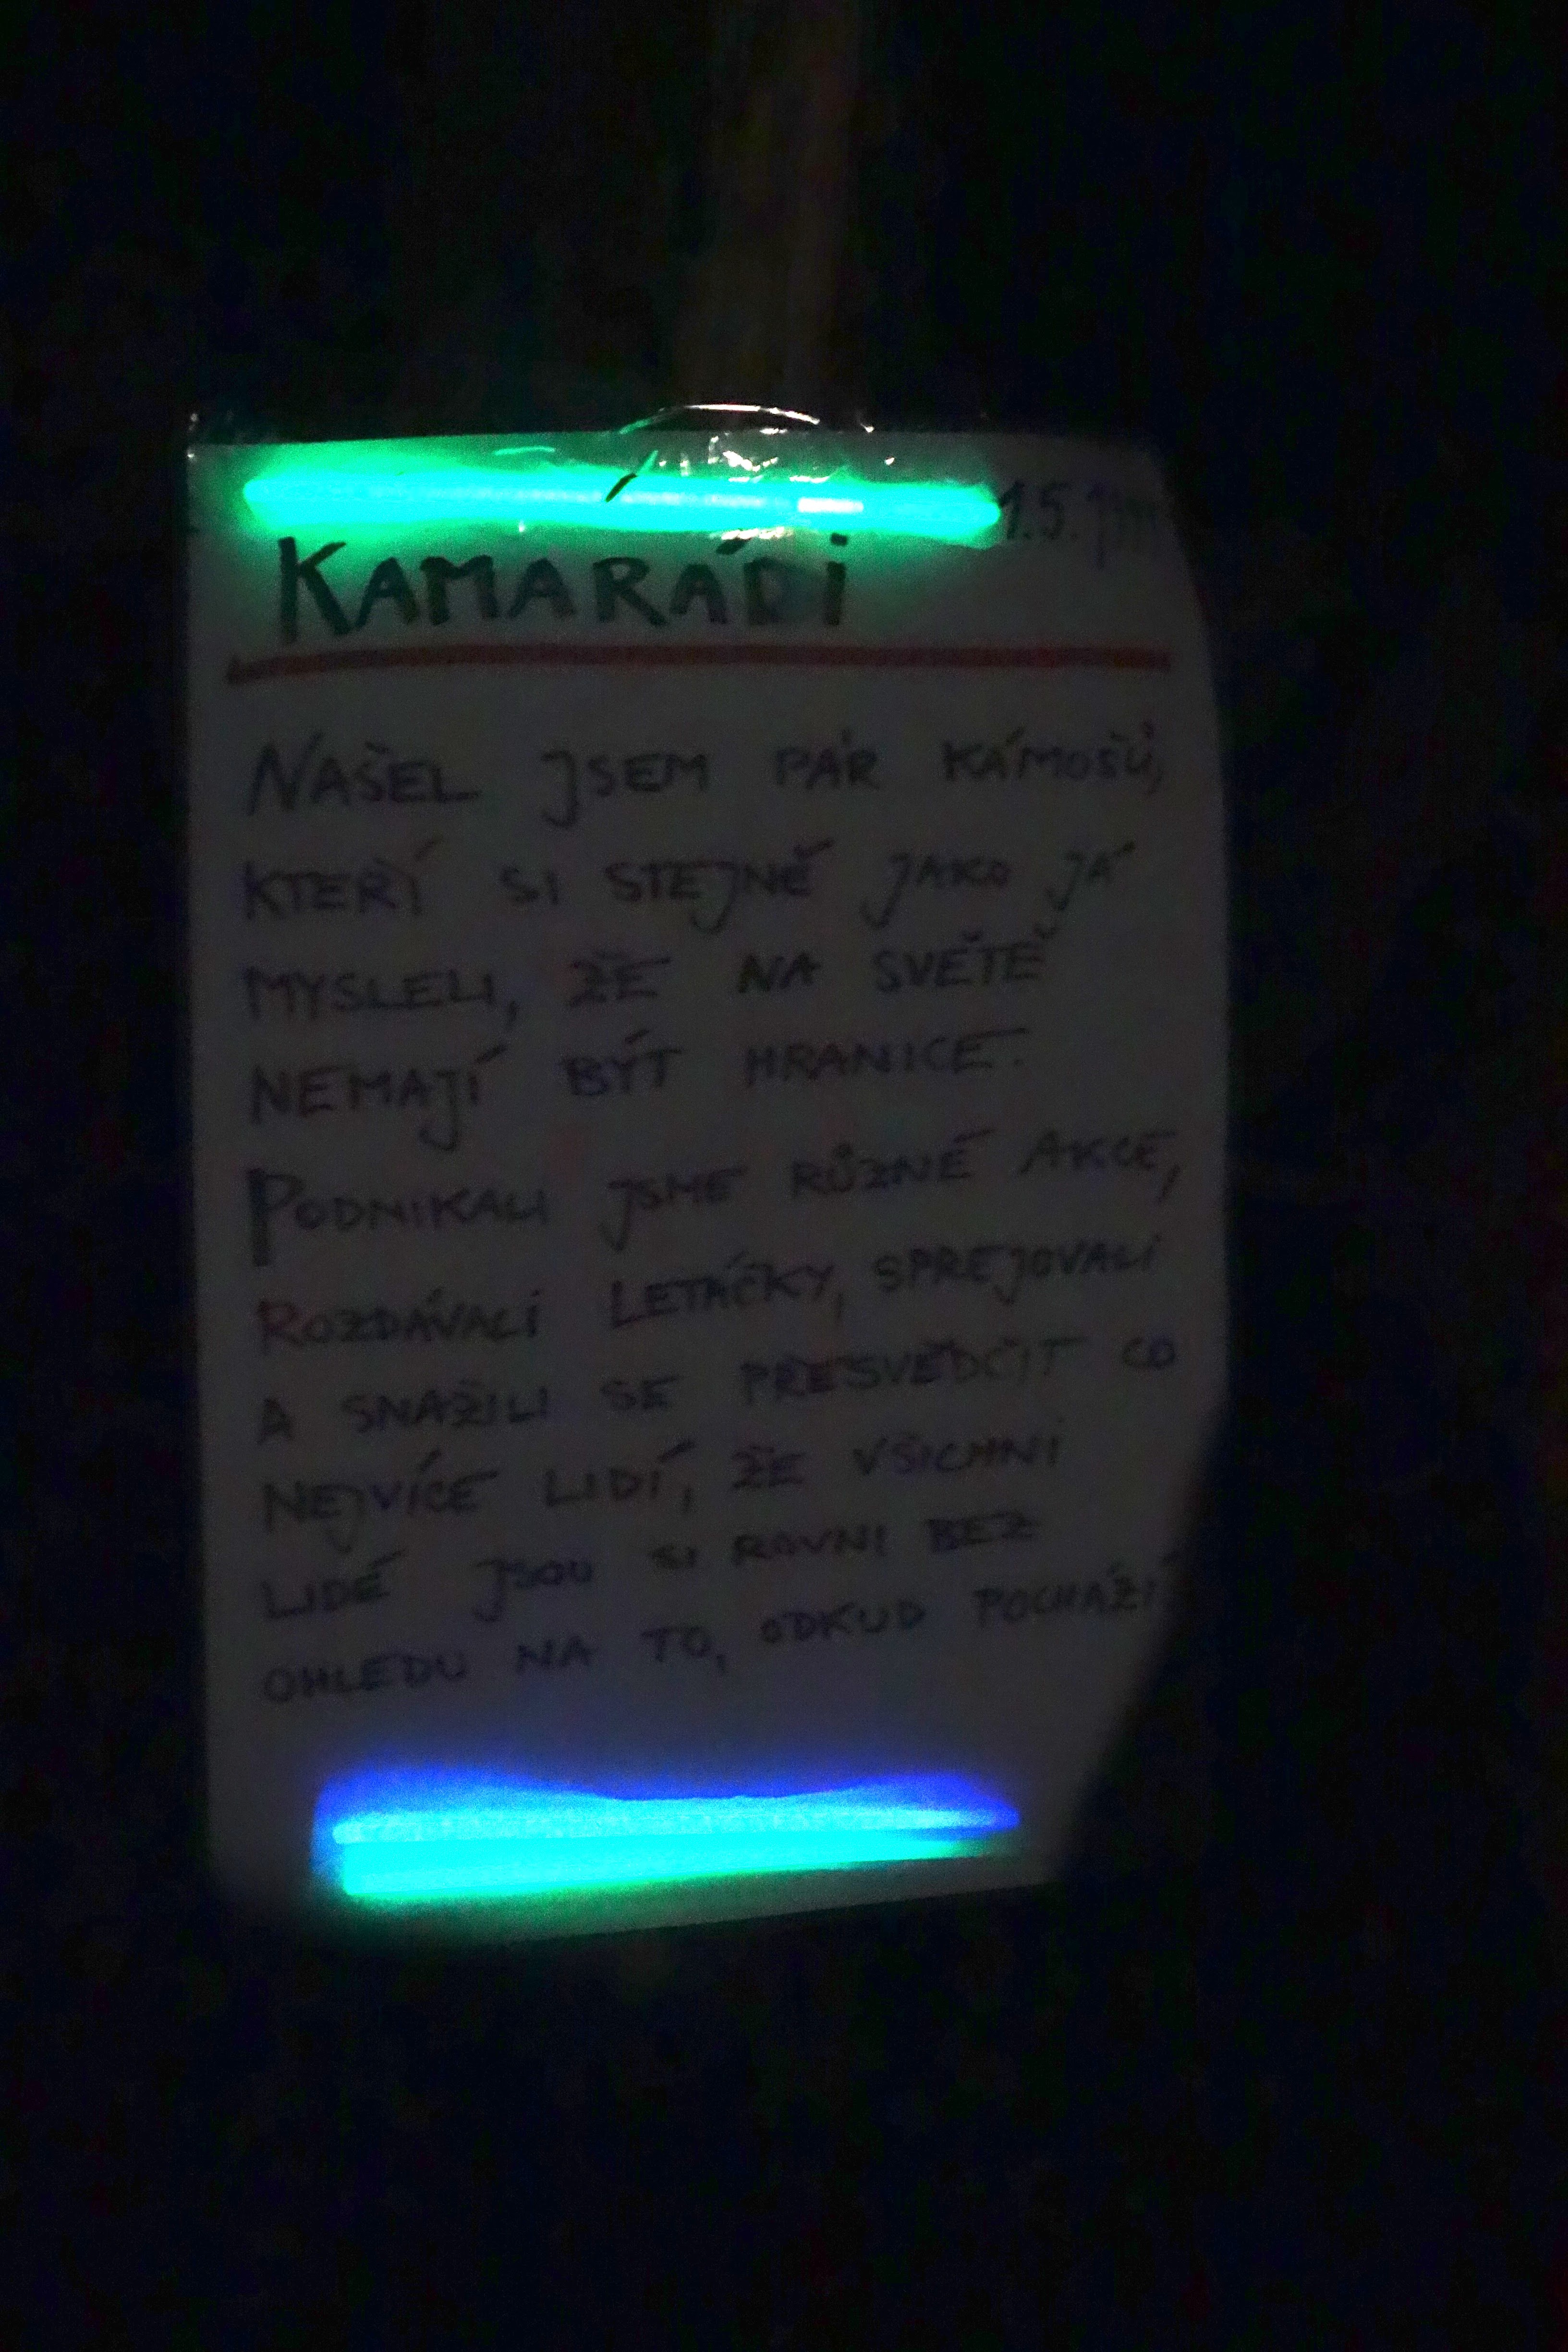 1.5.
KAMARÁDI
NAŠEL JSEM PÁR KÁMOŠŮ,
KTEŘÍ SI STEJNĚ JAKO JÁ
MYSLELI, ŽE NA SVĚTĚ
NEMAJÍ BÝT HRANICE.
PODNIKALI JSME RŮZNÉ AKCE,
ROZDÁVALI LETÁČKY, SPREJOVALI
A SNAŽILI SE PŘESVĚDČIT CO
NEJVÍCE LIDÍ, ŽE VŠICHNI
LIDÉ JSOU SI ROVNI BEZ
OHLEDU NA TO, ODKUD POCHÁZÍ.